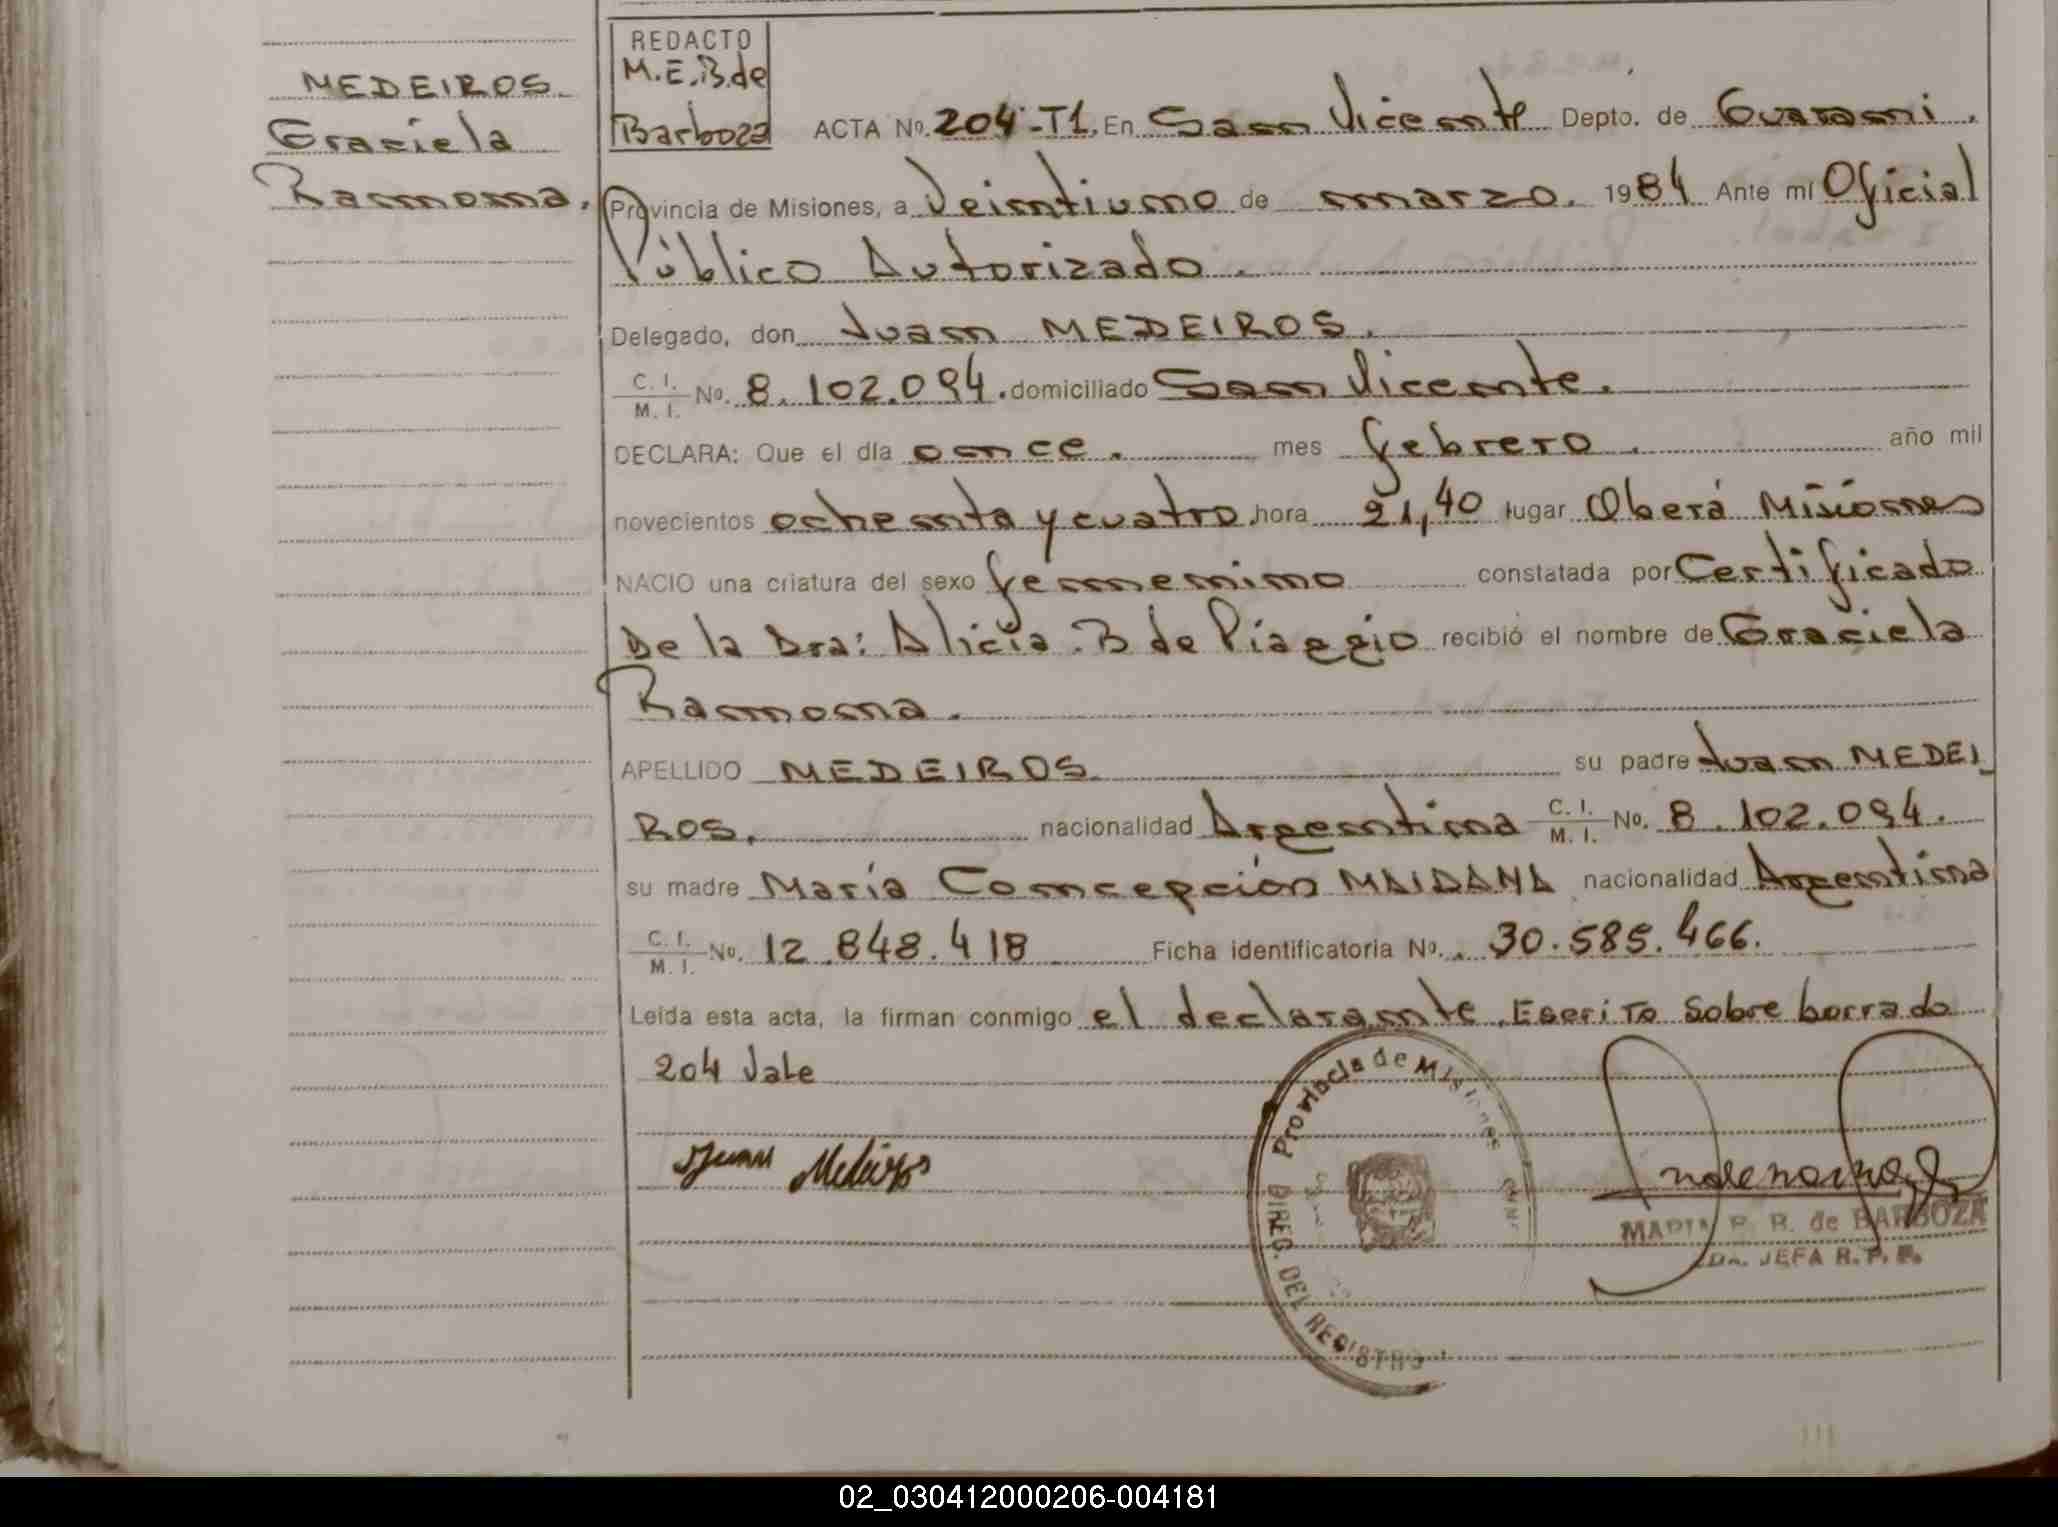 MEDEIROS.
Graciela
Ramona.
REDACTO
M.E.B.de
Barboza
ACTA No. 204-T1. En San Vicente Depto. de Guarani.
Provincia de Misiones, a Veintiuno de marzo. 1984 Ante mí Oficial
Público Autorizado.
Delegado, don Juan MEDEIROS.
C. I. / M. I. No. 8.102.094. domiciliado San Vicente.
DECLARA: Que el día once. mes febrero. año mil
novecientos ochenta y cuatro. hora 21,40 lugar Oberá Misiones
NACIO una criatura del sexo femenino constatada por Certificado
De la Dra: Alicia. B de Piaggio recibió el nombre de Graciela
Ramona.
APELLIDO MEDEIROS su padre Juan MEDEI_
ROS. nacionalidad Argentina C. I. / M. I. No. 8.102.094.
su madre María Concepción MAIDANA nacionalidad Argentina
C. I. / M. I. No. 12.848.418 Ficha identificatoria No. 30.585.466.
Leída esta acta, la firman conmigo el declarante. Escrito Sobre borrado
204 Vale
Juan Medeiros
Provincia de Misiones
DIREG. DEL REGISTRO
MARIA de BARBOZA
JEFA R. P. P.
02_030412000206-004181